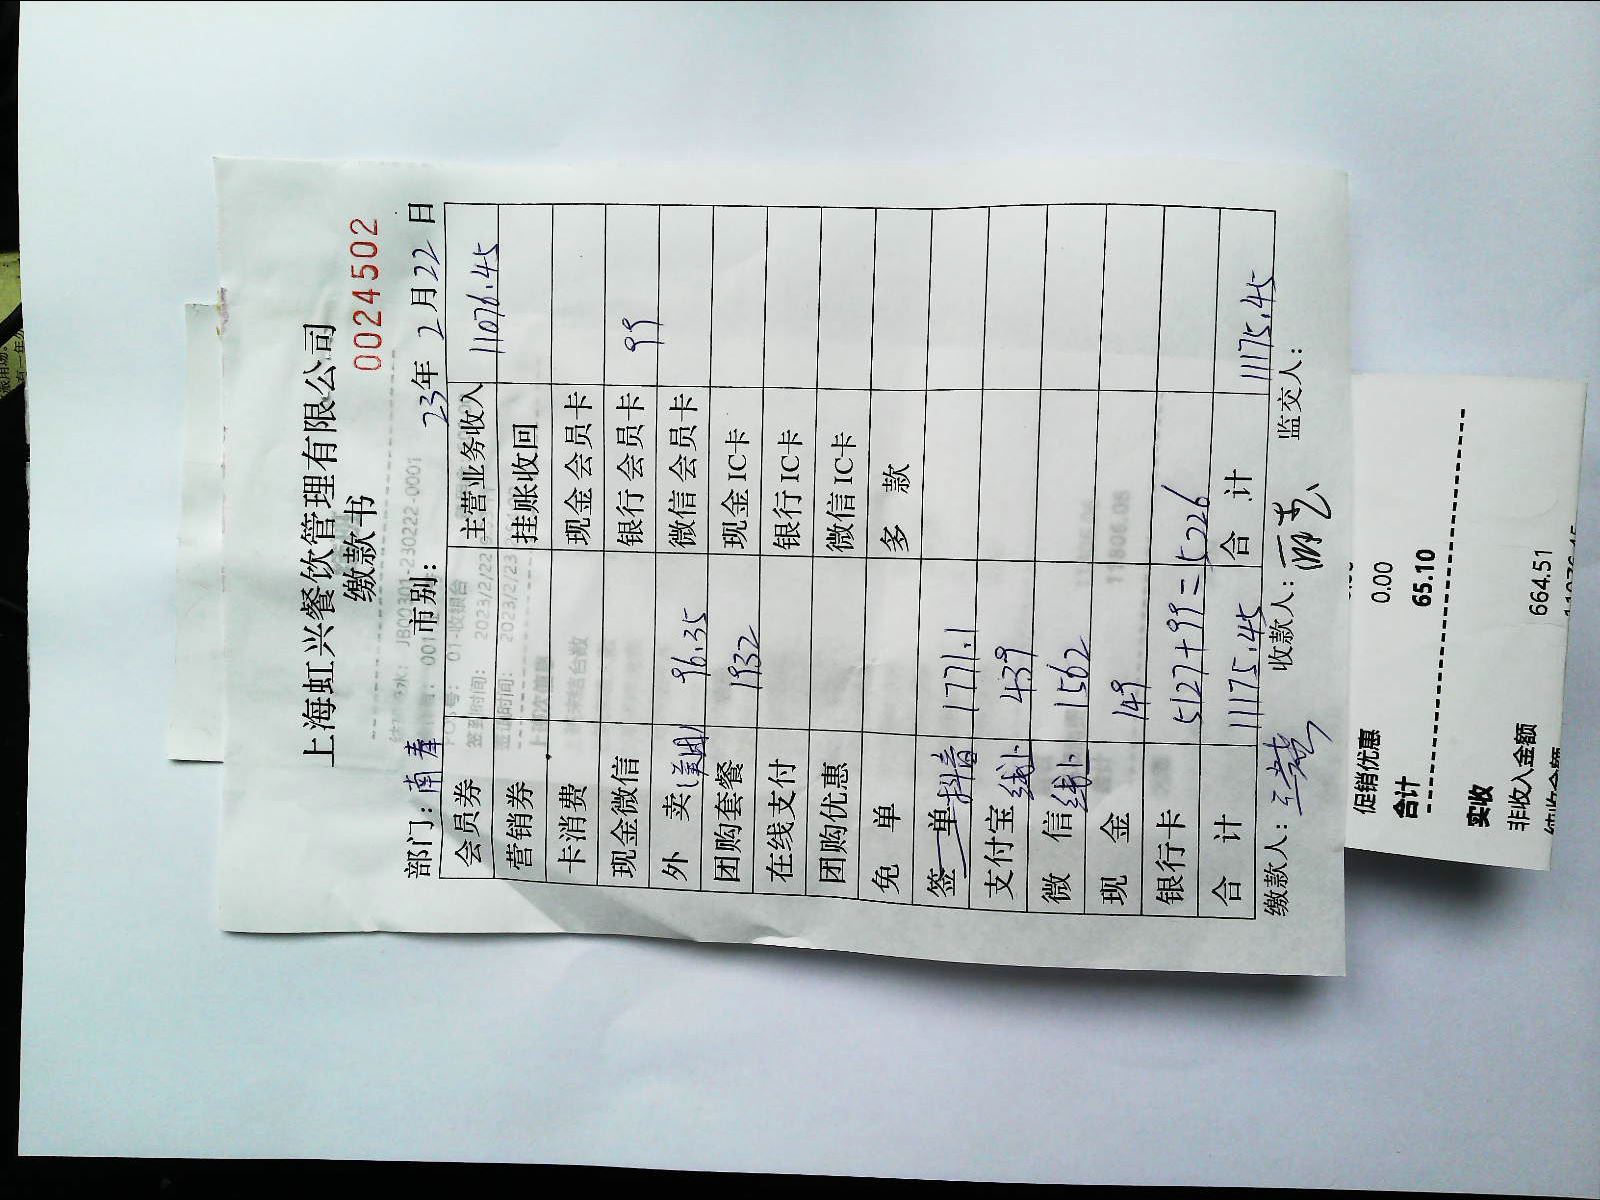 上海虹兴餐饮管理有限公司
缴款书
0024502
部门：南奉 市别： 23年 2月22日
会员券 主营业务收入 11076.45
营销券 挂账收回
卡消费 现金会员卡
现金微信 银行会员卡 99
外 卖(美团) 96.35 微信会员卡
团购套餐 1932 现金IC卡
在线支付 银行IC卡
团购优惠 微信IC卡
免 单 多 款
签 单 抖音 1771.1
支付宝 线上 439
微 信 线上 1562
现 金 149
银行卡 5127+99=5226
合 计 11175.45 合 计 11175.45
缴款人： 收款人： 监交人：
JB00301-230222-0001
01-收银台
2023/2/22
2023/2/23
11806.08
0.00
促销优惠
合计 65.10
实收
非收入金额 664.51